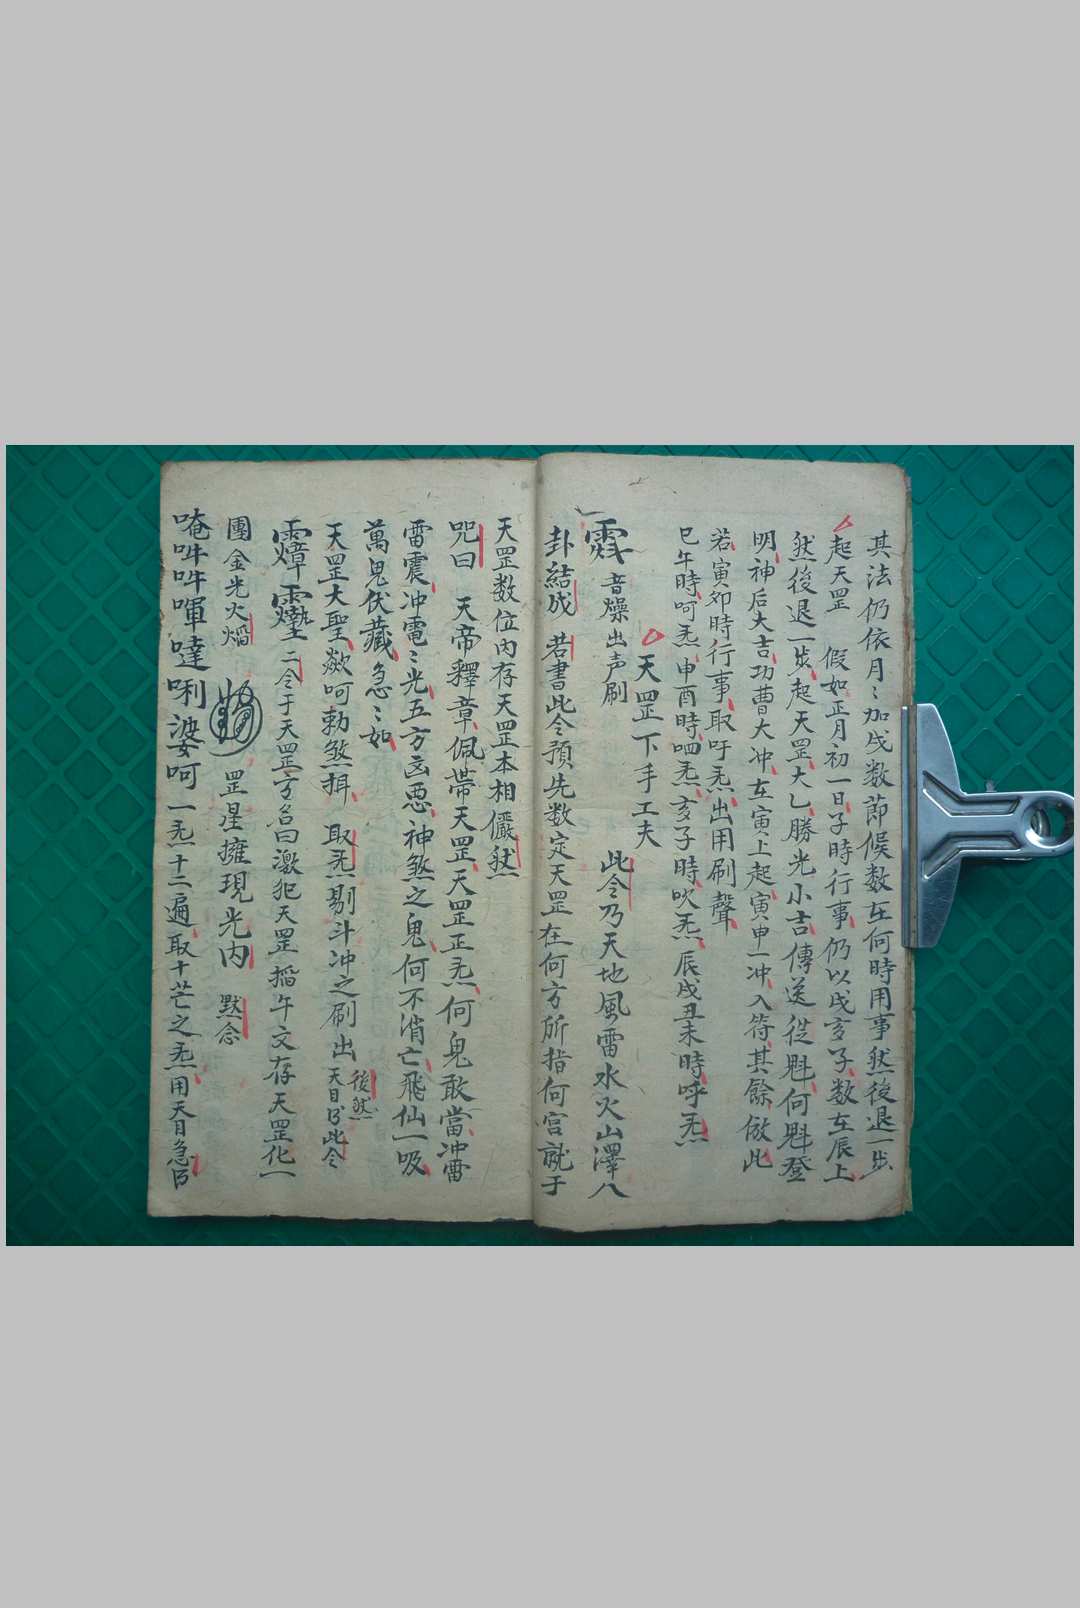 其法仍依月〻加戌数節候数在何時用事然後退一步
起天罡 假如正月初一日子時行事仍以戌亥子数在辰上
然後退一步起天罡大乙勝光小吉傳送從魁何魁登
明神后大吉功曹大冲在寅上起寅申一冲入符其餘倣此
若寅卯時行事取吁炁出用刷聲
巳午時呵炁申酉時呬炁亥子時吹炁辰戌丑未時呼炁
天罡下手工夫
音燥出声刷 此令乃天地風雷水火山澤八
卦結成 若書此令預先数定天罡在何方所指何宫就于
天罡数位内存天罡本相儼然
咒曰 天帝釋章佩帶天罡天罡正炁何鬼敢當冲雷
雷震冲電〻光五方凶惡神煞之鬼何不消亡飛仙一吸
萬鬼伏藏急〻如
天罡大聖歘呵勅煞揖 取炁剔斗冲之刷出 後然 天目 此令
二令于天罡方名曰激犯天罡 午文存天罡化一
團金光火焰 罡星擁現光内 默念
唵吽吽㖶噠唎婆呵一炁十二遍取十芒之炁用天目急